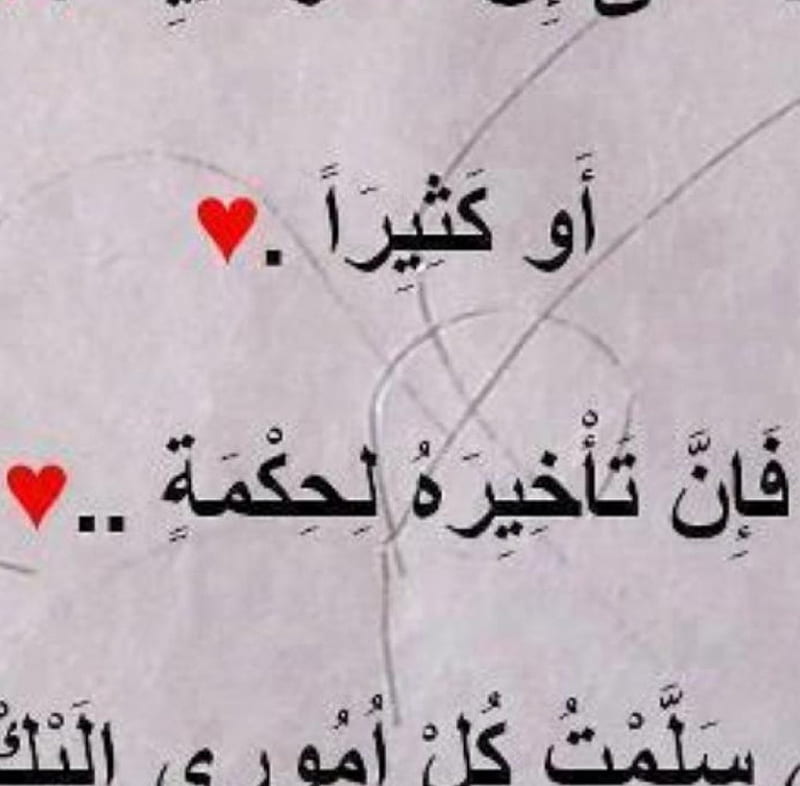 أَو كَثِيِرَاً .♥
فَإِنَّ تَأْخِيِرَهُ لِحِكْمَةٍ ..♥
سَلَّمْتُ كُلْ أُمُورِي الَيْكْ